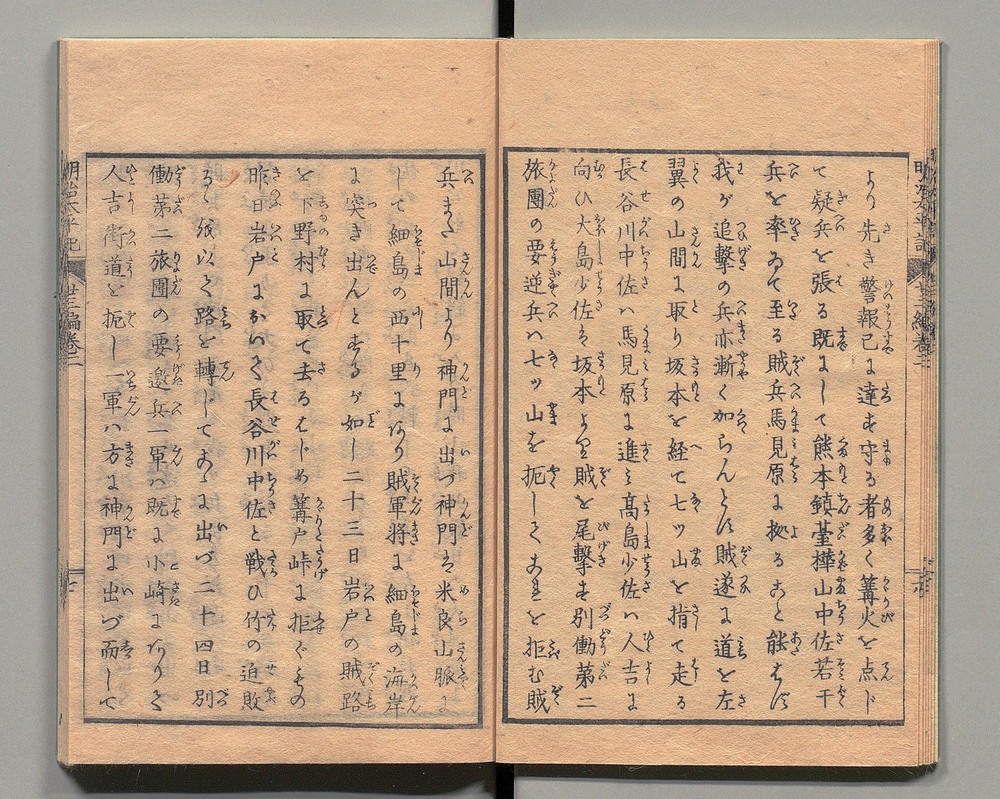 より先き警報已に達す守る者多く篝火を点じ
て疑兵を張る既にして熊本鎮臺樺山中佐若干
兵を率ゐて至る賊兵馬見原に拠ること能はず
我が追撃の兵亦漸く加らんとす賊遂に道を左
翼の山間に取り坂本を経て七ッ山を指て走る
長谷川中佐ハ馬見原に進ミ髙島少佐ハ人吉に
向ひ大島少佐ハ坂本より賊を尾撃す別働第二
旅團の要逆兵ハ七ッ山を扼してこれを拒む賊
兵また山間より神門に出づ神門ハ米良山脈に
して細島の西十里にあり賊軍将に細島の海岸
に突き出んとするが如し二十三日岩戸の賊路
を下野村に取て去るはじめ篝戸峠に拒ぐもの
昨日岩戸において長谷川中佐と戦ひ竹の迫敗
るゝを以て路を轉してこゝに出づ二十四日別
働第二旅團の要邀兵一軍ハ既に小崎にありて
人吉街道を扼し一軍ハ方に神門に出づ而して
明治太平記 廿三編巻二